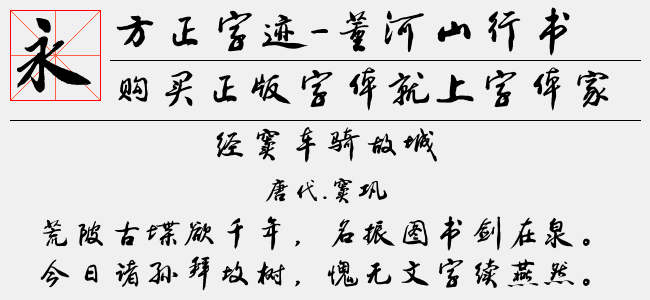 永
方正字迹-董河山行书
购买正版字体就上字体家
经窦车骑故城
唐代.窦巩
荒陂古堞欲千年，名振图书剑在泉。
今日诸孙拜坟树，愧无文字续燕然。